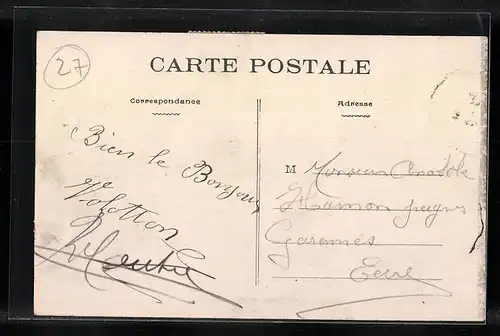 27
CARTE POSTALE
Correspondance
Adresse
Bien le Bonjour
M Monsieur Anatole
Hamon
Garennes
Eure